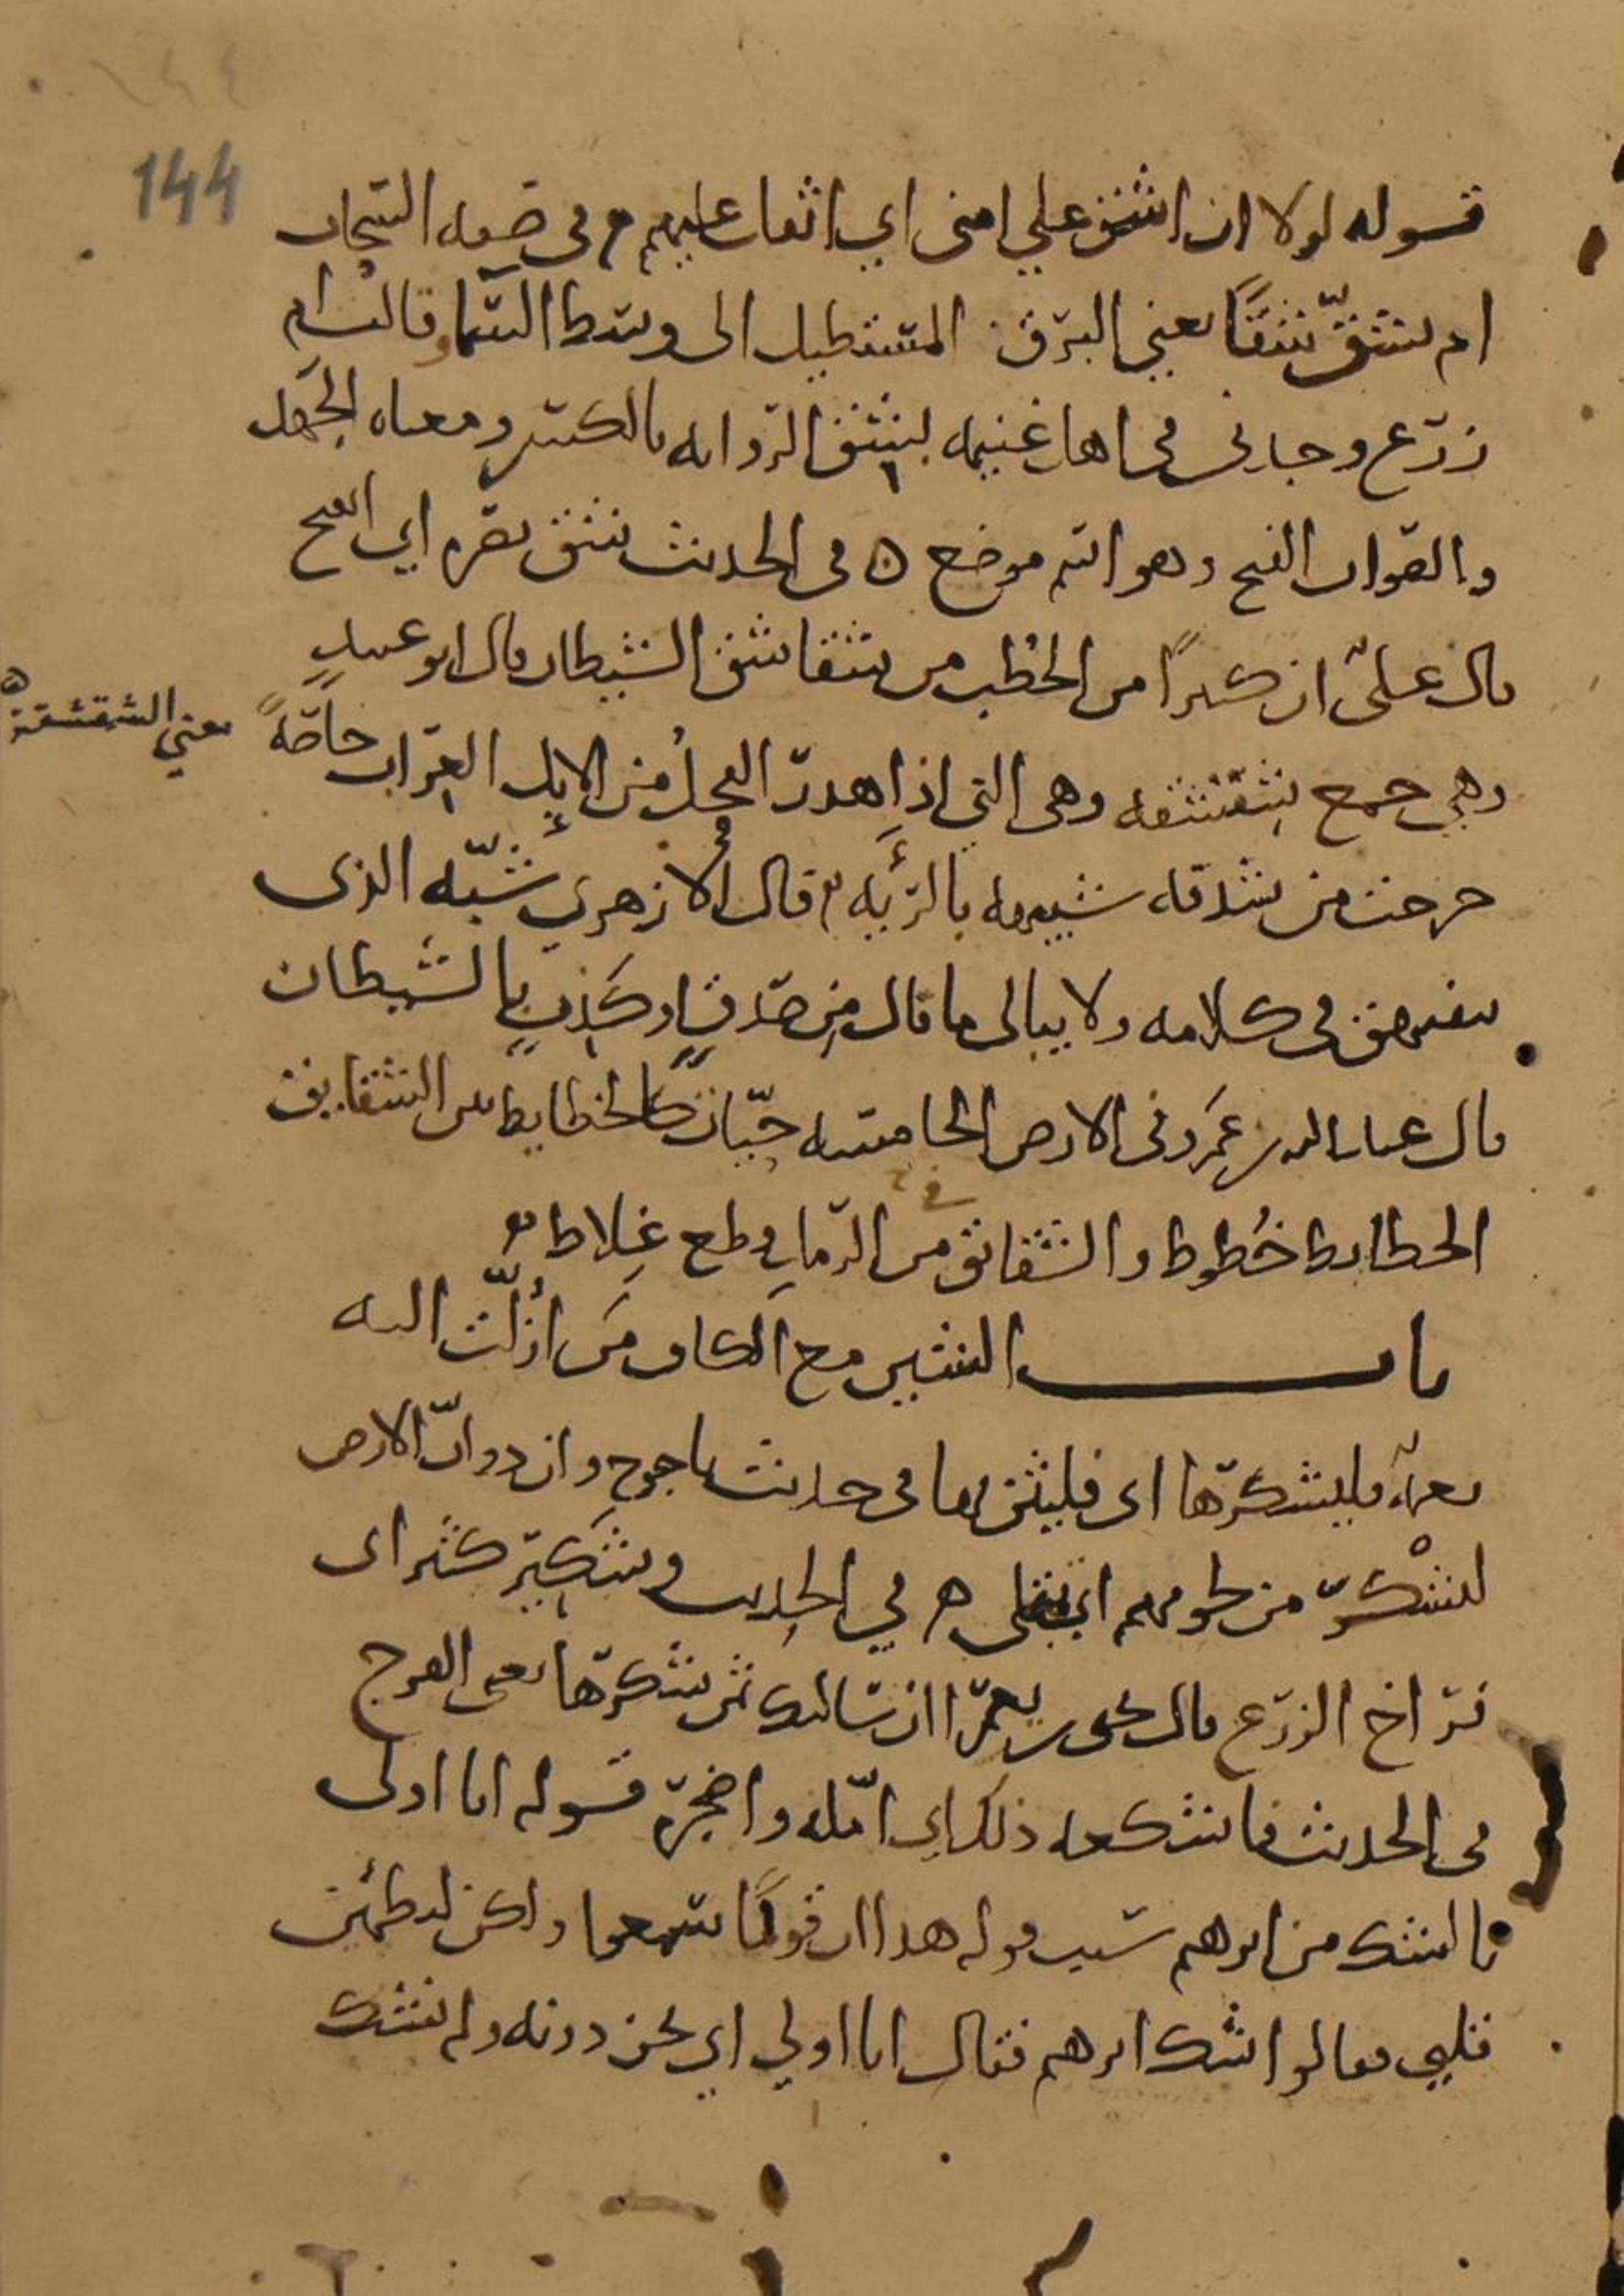 144
قوله لولا ان اشق علي امتي اي اثقل عليهم وفي صفه السحاب
ام يشق شقا يعني البرق المستطيل الى وسط السما وقالت ام
زرع وجدني في اهل غنيمه بشق الرواية بالكسر ومعناه الجهد
والصواب الفتح وهو اسم موضع ه في الحديث شق بصره اي انفتح
قال علي ان كثيرا من الخطب من شقاشق الشيطان قال ابو عبيد
وهي جمع شقشقه وهي التي اذا هدر الفحل من الابل العراب خاصة
يعني الشقشقة ه
خرجت من شدقه شبيهه بالرئه قال الازهري شبه الذي
يتفيهق في كلامه ولا يبالى ما قال من صدق او كذب بالشيطان
قال عبد الله بن عمرو في الارض الخامسه حيات كالخطايط بين الشقايق
الخطايط خطوط والشقائق من الرمل قطع غلاظ
باب الشين مع الكاف من ازلت اليه
نعمة فليشكرها اى فليثن بها في حديث ياجوج وان دواب الارض
لتشكر من لحومهم اي تمتلى ه في الحديث وشكير كثير اى
فراخ الزرع قال يحيى بن يعمر اان سالتك ثمن شكرها يعنى الفرج
في الحديث فاشكعه ذلك اي امله واضجره قوله انا اولى
بالشك من ابرهيم سبب قوله هذا ان قوما سمعوا ولكن ليطمئن
قلبي فقالوا اشك ابرهيم فقال انا اولي اي نحن دونه ولم نشك